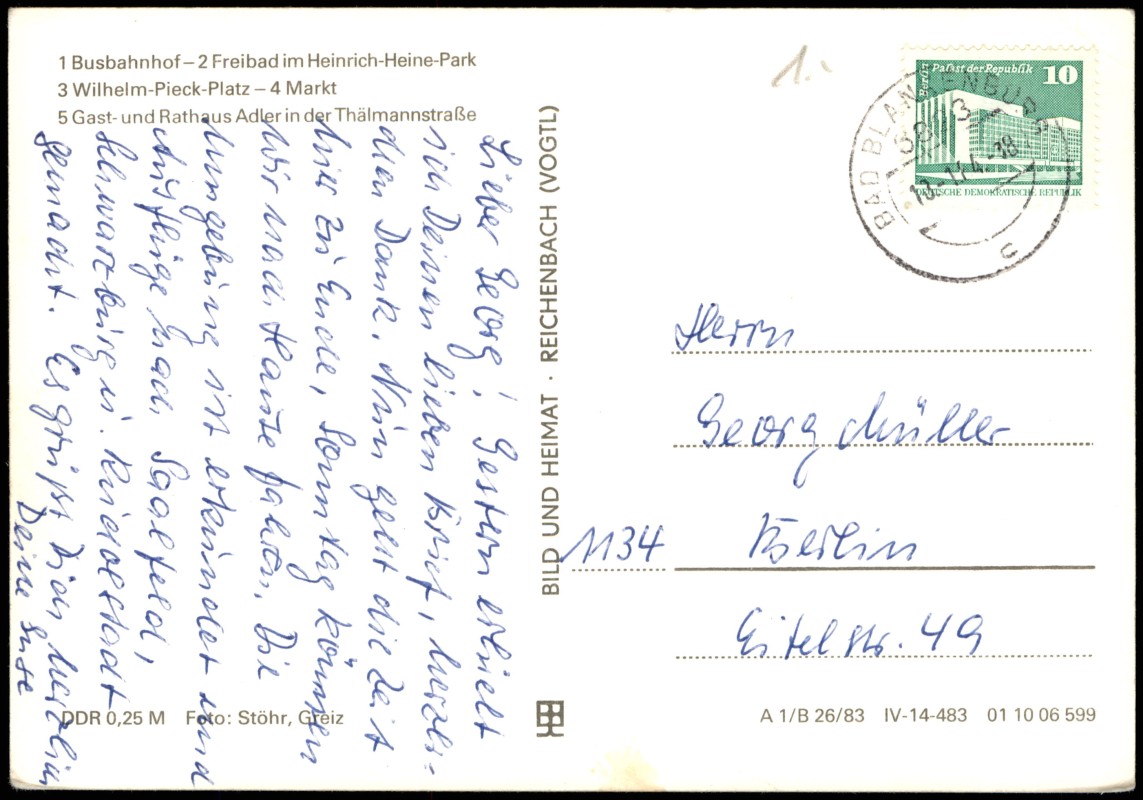 1 Busbahnhof – 2 Freibad im Heinrich-Heine-Park
3 Wilhelm-Pieck-Platz – 4 Markt
5 Gast- und Rathaus Adler in der Thälmannstraße
Lieber Georg! Gestern erhielt
ich Deinen lieben Brief, herzli-
chen Dank. Nun geht die Zeit
hier zu Ende, Sonntag können
wir nach Hause fahren. Die
Umgebung ist erkundet und
Ausflüge nach Saalfeld,
Schwarzburg u. Rudolstadt
gemacht. Es grüßt Dich herzlich
Deine
DDR 0,25 M Foto: Stöhr, Greiz
BILD UND HEIMAT · REICHENBACH (VOGTL)
1.-
Berlin Palast der Republik 10
DEUTSCHE DEMOKRATISCHE REPUBLIK
BAD BLANKENBURG
6823
Herrn
Georg Müller
1134 Berlin
Eitelstr. 49
A 1/B 26/83 IV-14-483 01 10 06 599